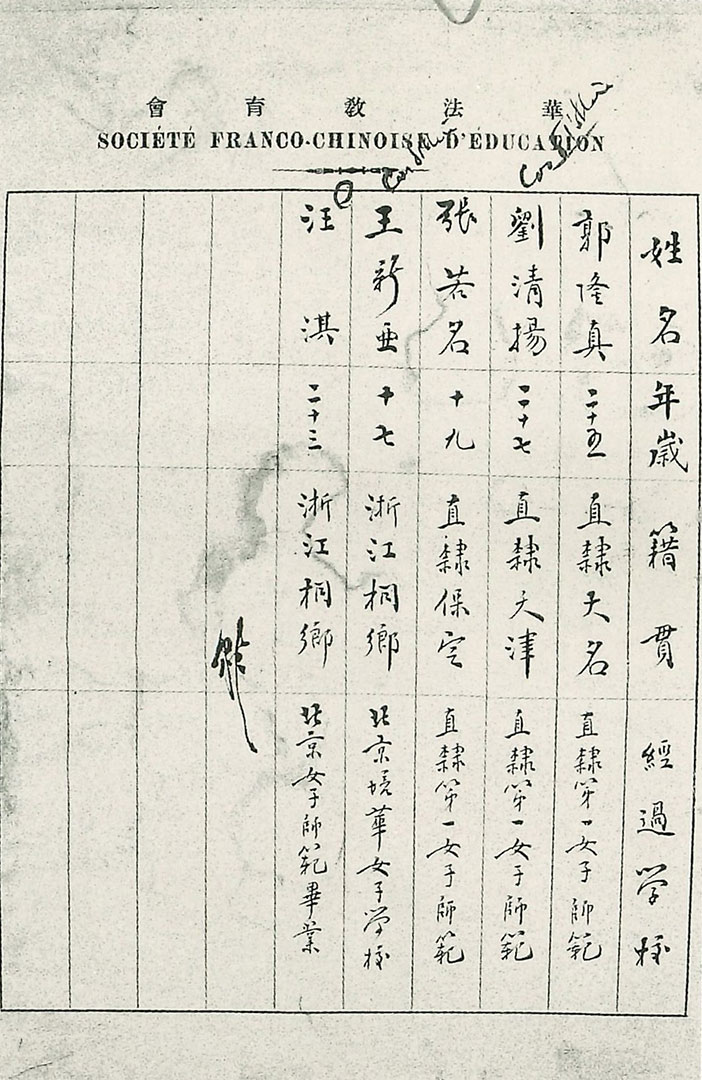 華法教育會
SOCIÉTÉ FRANCO-CHINOISE D'ÉDUCATION
姓名 年歲 籍貫 經過学校
郭隆真 二十五 直隸大名 直隸第一女子師範
劉清揚 二十七 直隸天津 直隸第一女子師範
張若名 十九 直隸保定 直隸第一女子師範
王新亜 十七 浙江桐鄉 北京境華女子学校
汪淇 二十三 浙江桐鄉 北京女子師範畢業